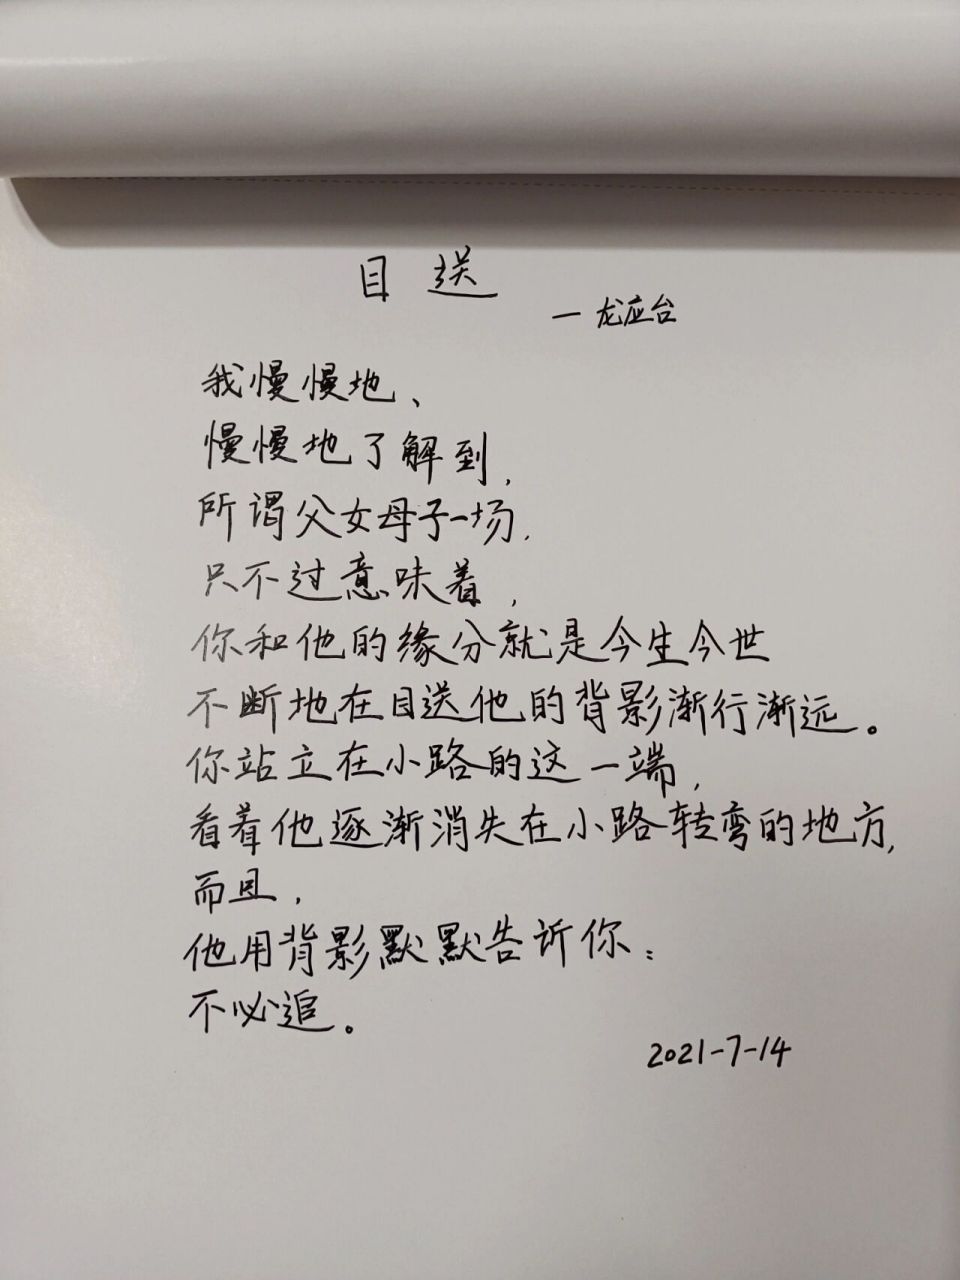 目送
一龙应台
我慢慢地、
慢慢地了解到,
所谓父女母子一场,
只不过意味着,
你和他的缘分就是今生今世
不断地在目送他的背影渐行渐远。
你站立在小路的这一端,
看着他逐渐消失在小路转弯的地方,
而且,
他用背影默默告诉你:
不必追。
2021-7-14